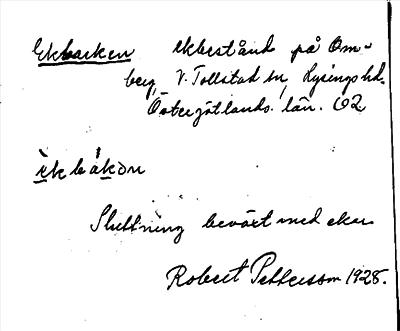 Ekbacken ekbestånd på Om-
berg, V. Tollstad sn, Lysings hd.
Östergötlands. län. Ö2
èkbákən
Sluttning beväxt med ekar
Robert Pettersson 1928.